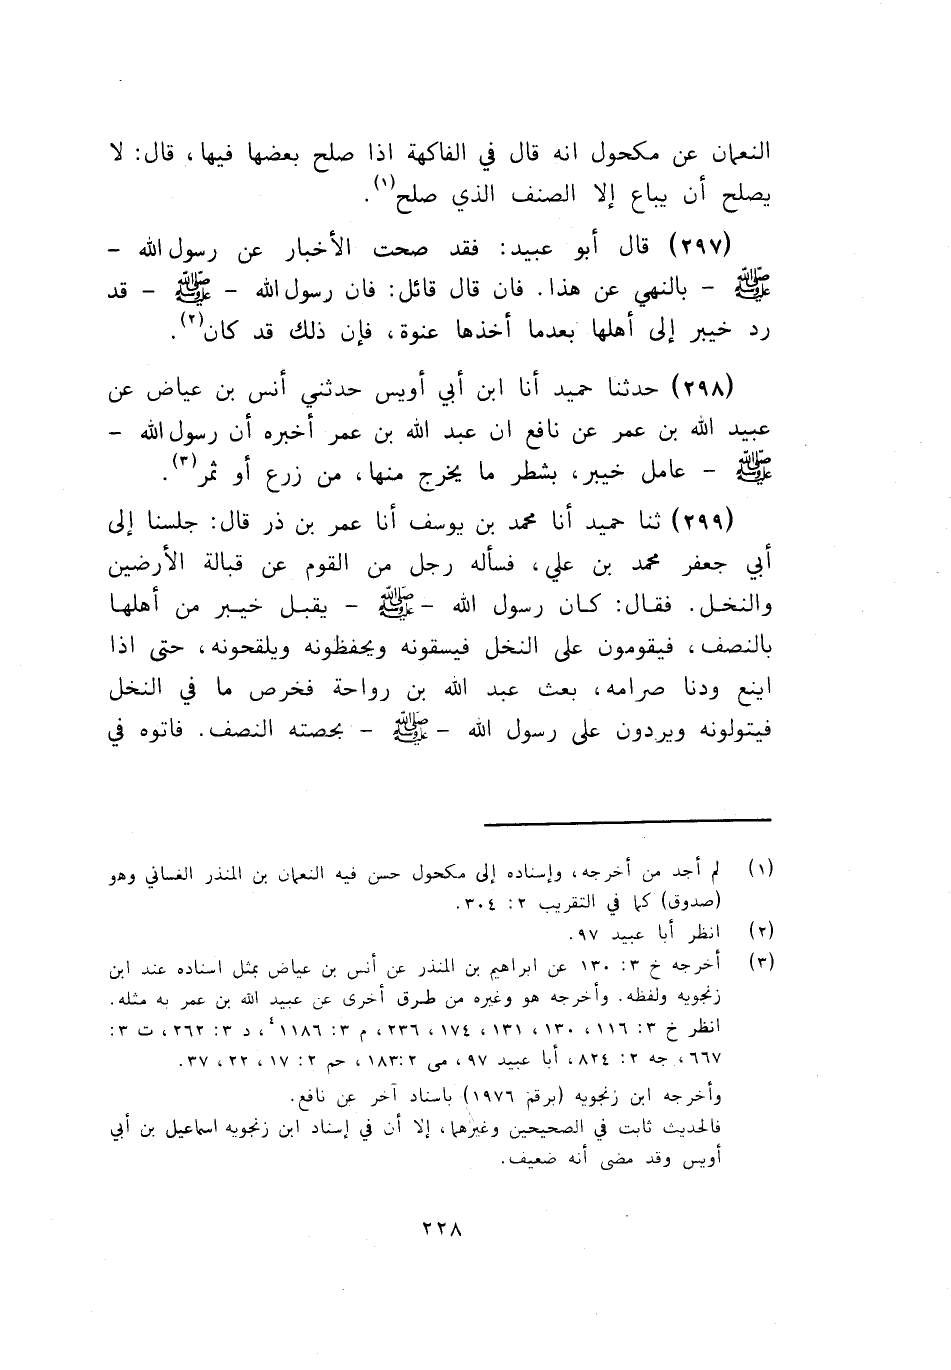 النعمان عن مكحول انه قال في الفاكهة اذا صلح بعضها فيها، قال: لا
يصلح أن يباع إلا الصنف الذي صلح(١).
(٢٩٧) قال أبو عبيد: فقد صحت الأخبار عن رسول الله -
ﷺ - بالنهي عن هذا. فان قال قائل: فان رسول الله - ﷺ - قد
رد خيبر إلى أهلها بعدما أخذها عنوة، فإن ذلك قد كان(٢).
(٢٩٨) حدثنا حميد أنا ابن أبي أويس حدثني أنس بن عياض عن
عبيد الله بن عمر عن نافع ان عبد الله بن عمر أخبره أن رسول الله -
ﷺ - عامل خيبر، بشطر ما يخرج منها، من زرع أو ثمر(٣).
(٢٩٩) ثنا حميد أنا محمد بن يوسف أنا عمر بن ذر قال: جلسنا إلى
أبي جعفر محمد بن علي، فسأله رجل من القوم عن قبالة الأرضين
والنخل. فقال: كان رسول الله - ﷺ - يقبل خيبر من أهلها
بالنصف، فيقومون على النخل فيسقونه ويحفظونه ويلقحونه، حتى اذا
اينع ودنا صرامه، بعث عبد الله بن رواحة فخرص ما في النخل
فيتولونه ويردون على رسول الله - ﷺ - بحصته النصف. فاتوه في
(١) لم أجد من أخرجه، وإسناده إلى مكحول حسن فيه النعمان بن المنذر الغساني وهو
(صدوق) كما في التقريب ٢: ٣٠٤.
(٢) انظر أبا عبيد ٩٧.
(٣) أخرجه خ ٣: ١٣٠ عن ابراهيم بن المنذر عن أنس بن عياض بمثل اسناده عند ابن
زنجويه ولفظه. وأخرجه هو وغيره من طرق أخرى عن عبيد الله بن عمر به مثله.
انظر خ ٣: ١١٦، ١٣٠، ١٣١، ١٧٤، ٢٣٦، م ٣: ١١٨٦، د ٣: ٢٦٢، ت ٣:
٦٦٧، جه ٢: ٨٢٤، أبا عبيد ٩٧، مى ٢:١٨٣، حم ٢: ١٧، ٢٢، ٣٧.
وأخرجه ابن زنجويه (برقم ١٩٧٦) باسناد آخر عن نافع.
فالحديث ثابت في الصحيحين وغيرهما، إلا أن في إسناد ابن زنجويه اسماعيل بن أبي
أويس وقد مضى أنه ضعيف.
٢٢٨